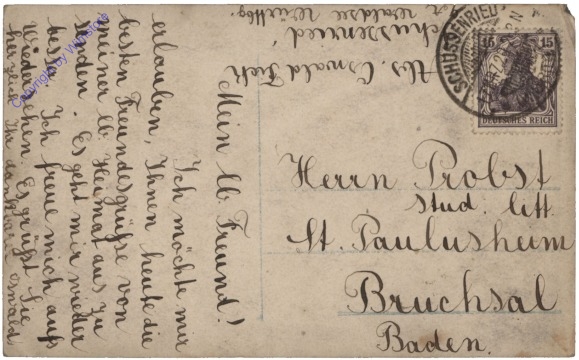 Mein lb. Freund!
Ich möchte mir
erlauben, Ihnen heute die
besten Freundesgrüße von
meiner lb. Heimat aus zu
senden. Es geht mir wieder
besser. Ich freue mich aufs
Wiedersehen. Es grüßt Sie
herzlich Ihr dankbarer Oswald
Abs. Oswald
Schussenried
Waldsee Württbg.
SCHUSSENRIED
15 15
DEUTSCHES REICH
Herrn Probst
stud. litt.
St. Paulusheim
Bruchsal
Baden.
Copyright by